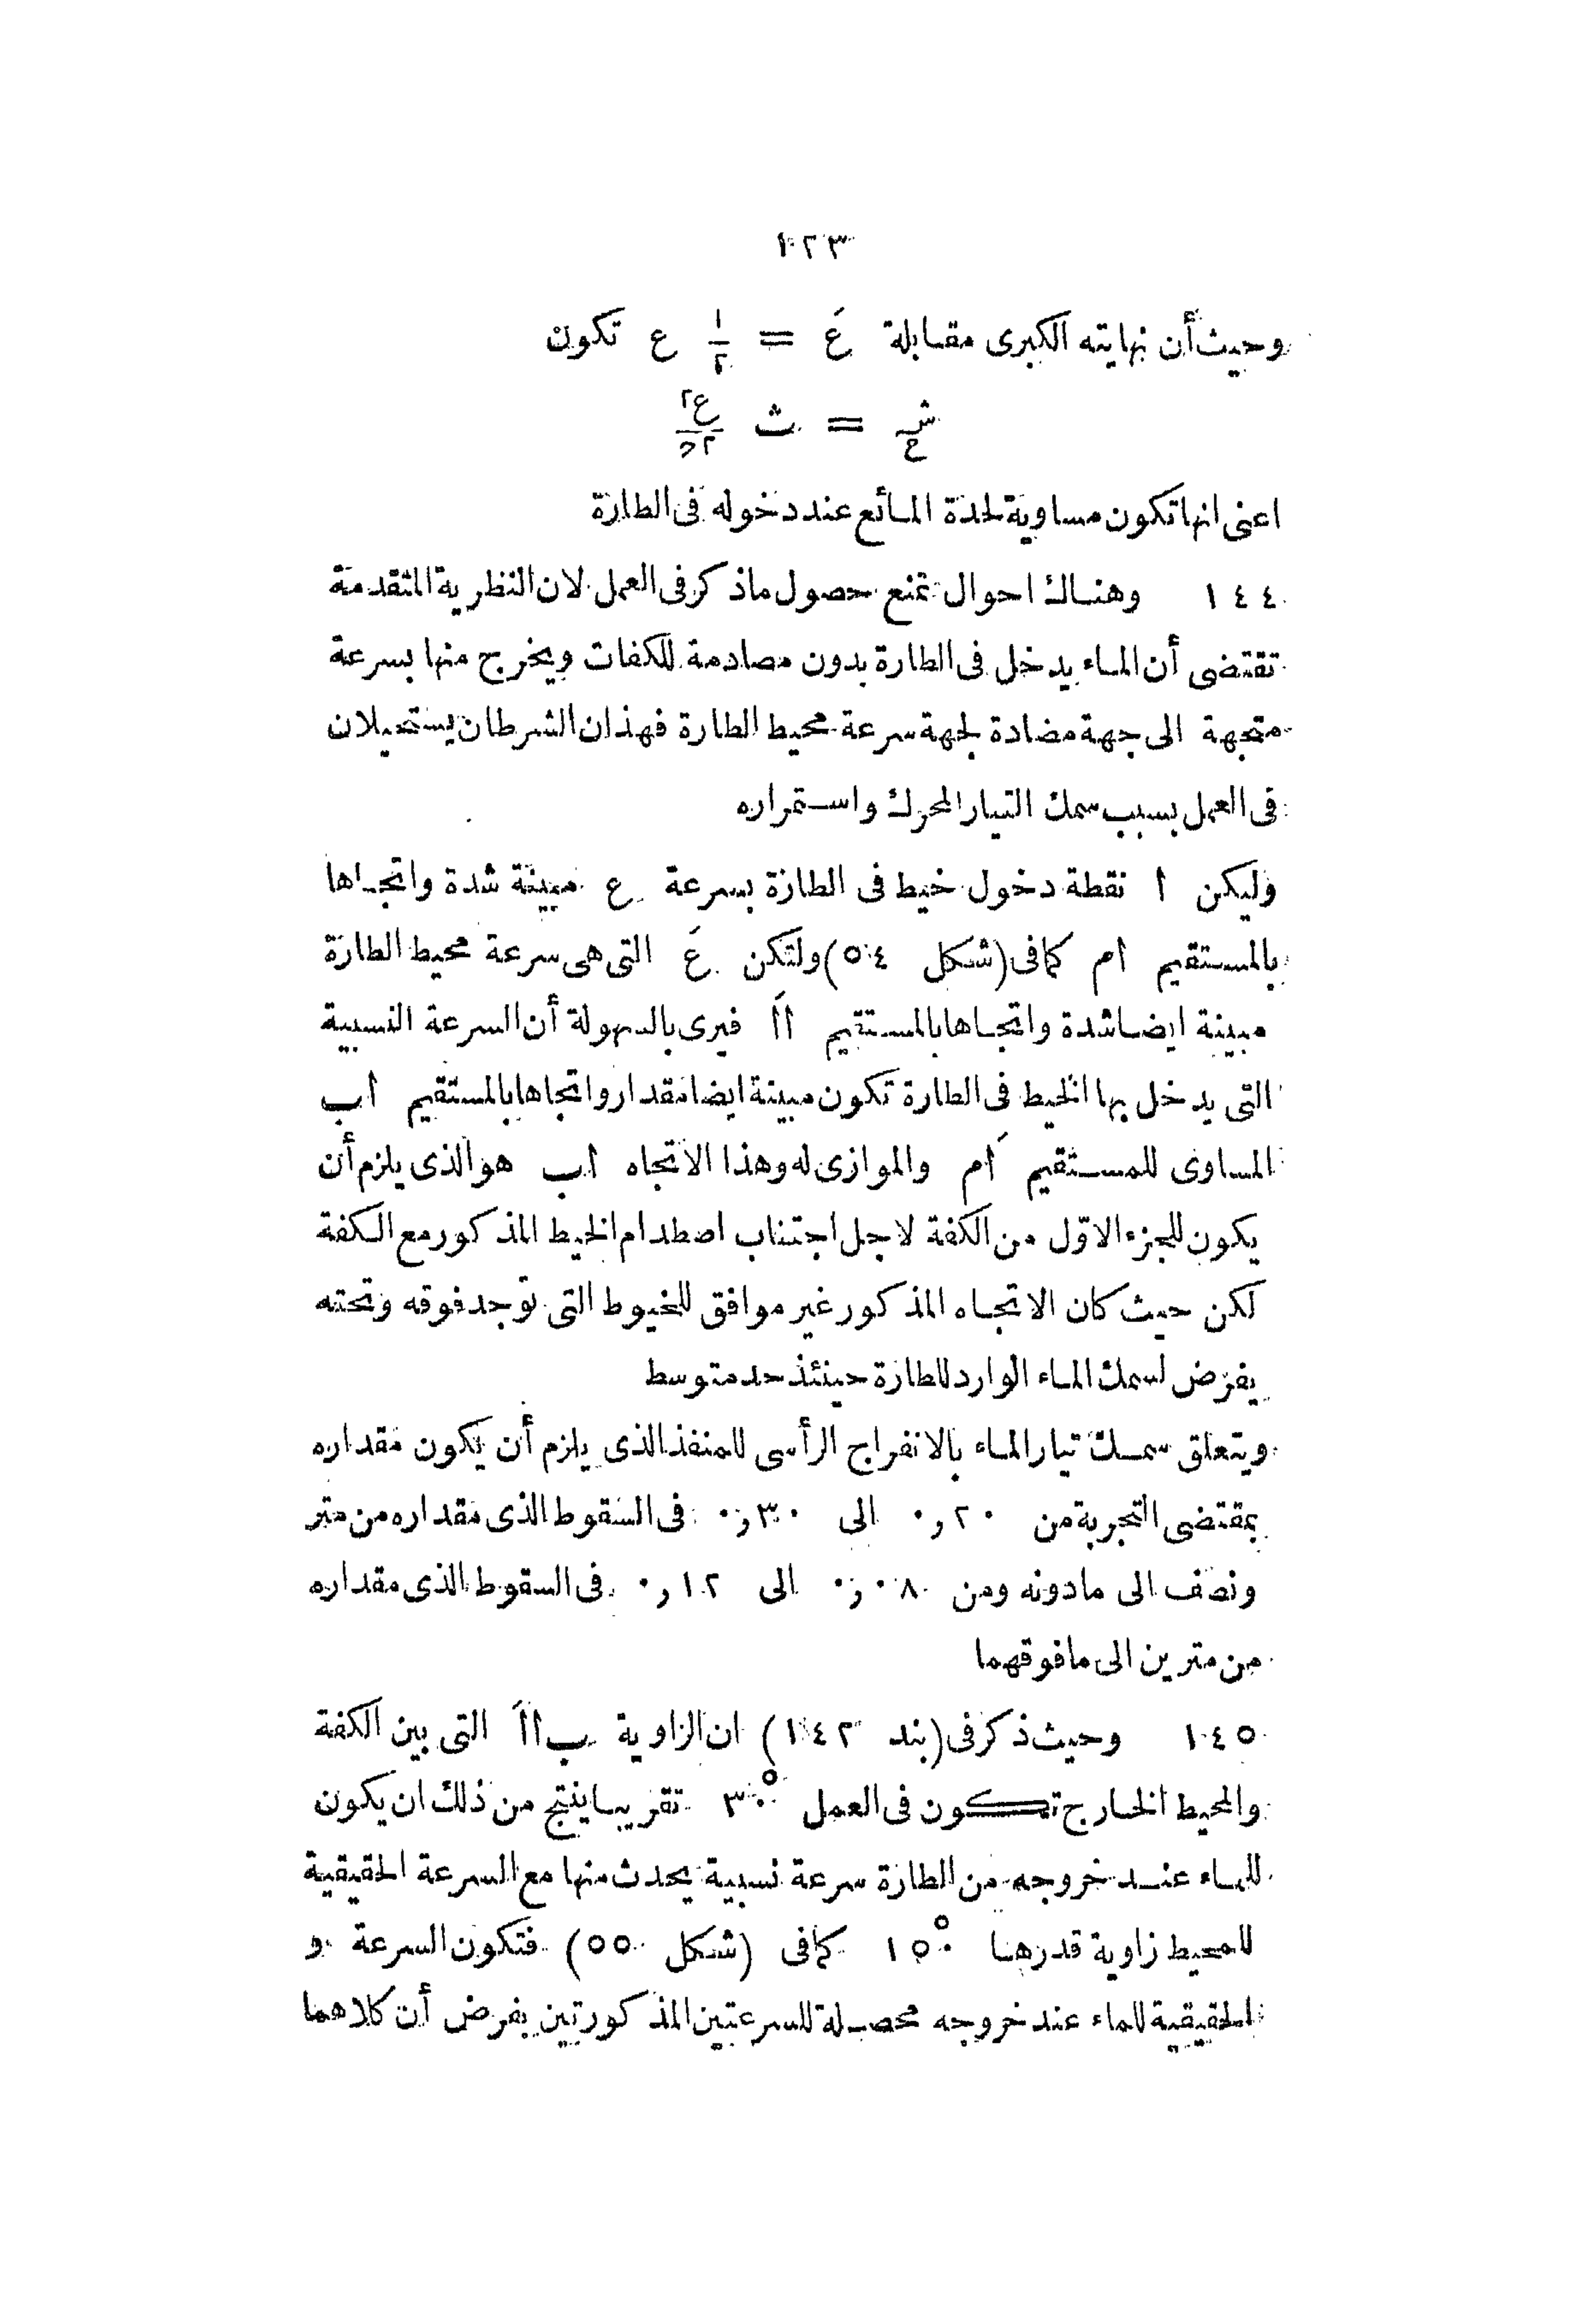 ١٢٣
وحيث أن نهايته الكبرى مقابلة عَ = ١/٢ ع تكون
ش/ع = ث ع٢/٢ح
اعنى انها تكون مساوية لحدة المائع عند دخوله فى الطارة
١٤٤ وهناك احوال تمنع حصول ماذكر فى العمل لان النظرية المتقدمة
تقتضى أن الماء يدخل فى الطارة بدون مصادمة للكفات ويخرج منها بسرعة
متجهة الى جهة مضادة لجهة سرعة محيط الطارة فهذان الشرطان يستحيلان
فى العمل بسبب سمك التيار المحرك واستمراره
وليكن ا نقطة دخول خيط فى الطارة بسرعة ع مبينة شدة واتجاها
بالمستقيم ام كما فى (شكل ٥٤) ولتكن عَ التى هى سرعة محيط الطارة
مبينة ايضا شدة واتجاها بالمستقيم ااَ فيرى بالسهولة أن السرعة النسبية
التى يدخل بها الخيط فى الطارة تكون مبينة ايضا مقدار واتجاها بالمستقيم اب
المساوى للمستقيم اَم والموازى له وهذا الاتجاه اب هو الذى يلزم أن
يكون للجزء الاوّل من الكفة لاجل اجتناب اصطدام الخيط المذكور مع الكفة
لكن حيث كان الاتجاه المذكور غير موافق للخيوط التى توجد فوقه وتحته
يفرض لسمك الماء الوارد للطارة حينئذ حد متوسط
ويتعلق سمك تيار الماء بالانفراج الرأسى للمنفذ الذى يلزم أن يكون مقداره
بمقتضى التجربة من ٠ر٢٠ الى ٠ر٣٠ فى السقوط الذى مقداره من متر
ونصف الى مادونه ومن ٠ر٠٨ الى ٠ر١٢ فى السقوط الذى مقداره
من مترين الى مافوقهما
١٤٥ وحيث ذكر فى (بند ١٤٢) ان الزاوية ب ااَ التى بين الكفة
والمحيط الخارج تكون فى العمل ٣٠° تقريبا ينتج من ذلك ان يكون
للماء عند خروجه من الطارة سرعة نسبية يحدث منها مع السرعة الحقيقية
للمحيط زاوية قدرها ١٥٠° كما فى (شكل ٥٥) فتكون السرعة و
الحقيقية للماء عند خروجه محصلة للسرعتين المذكورتين بفرض أن كلاهما